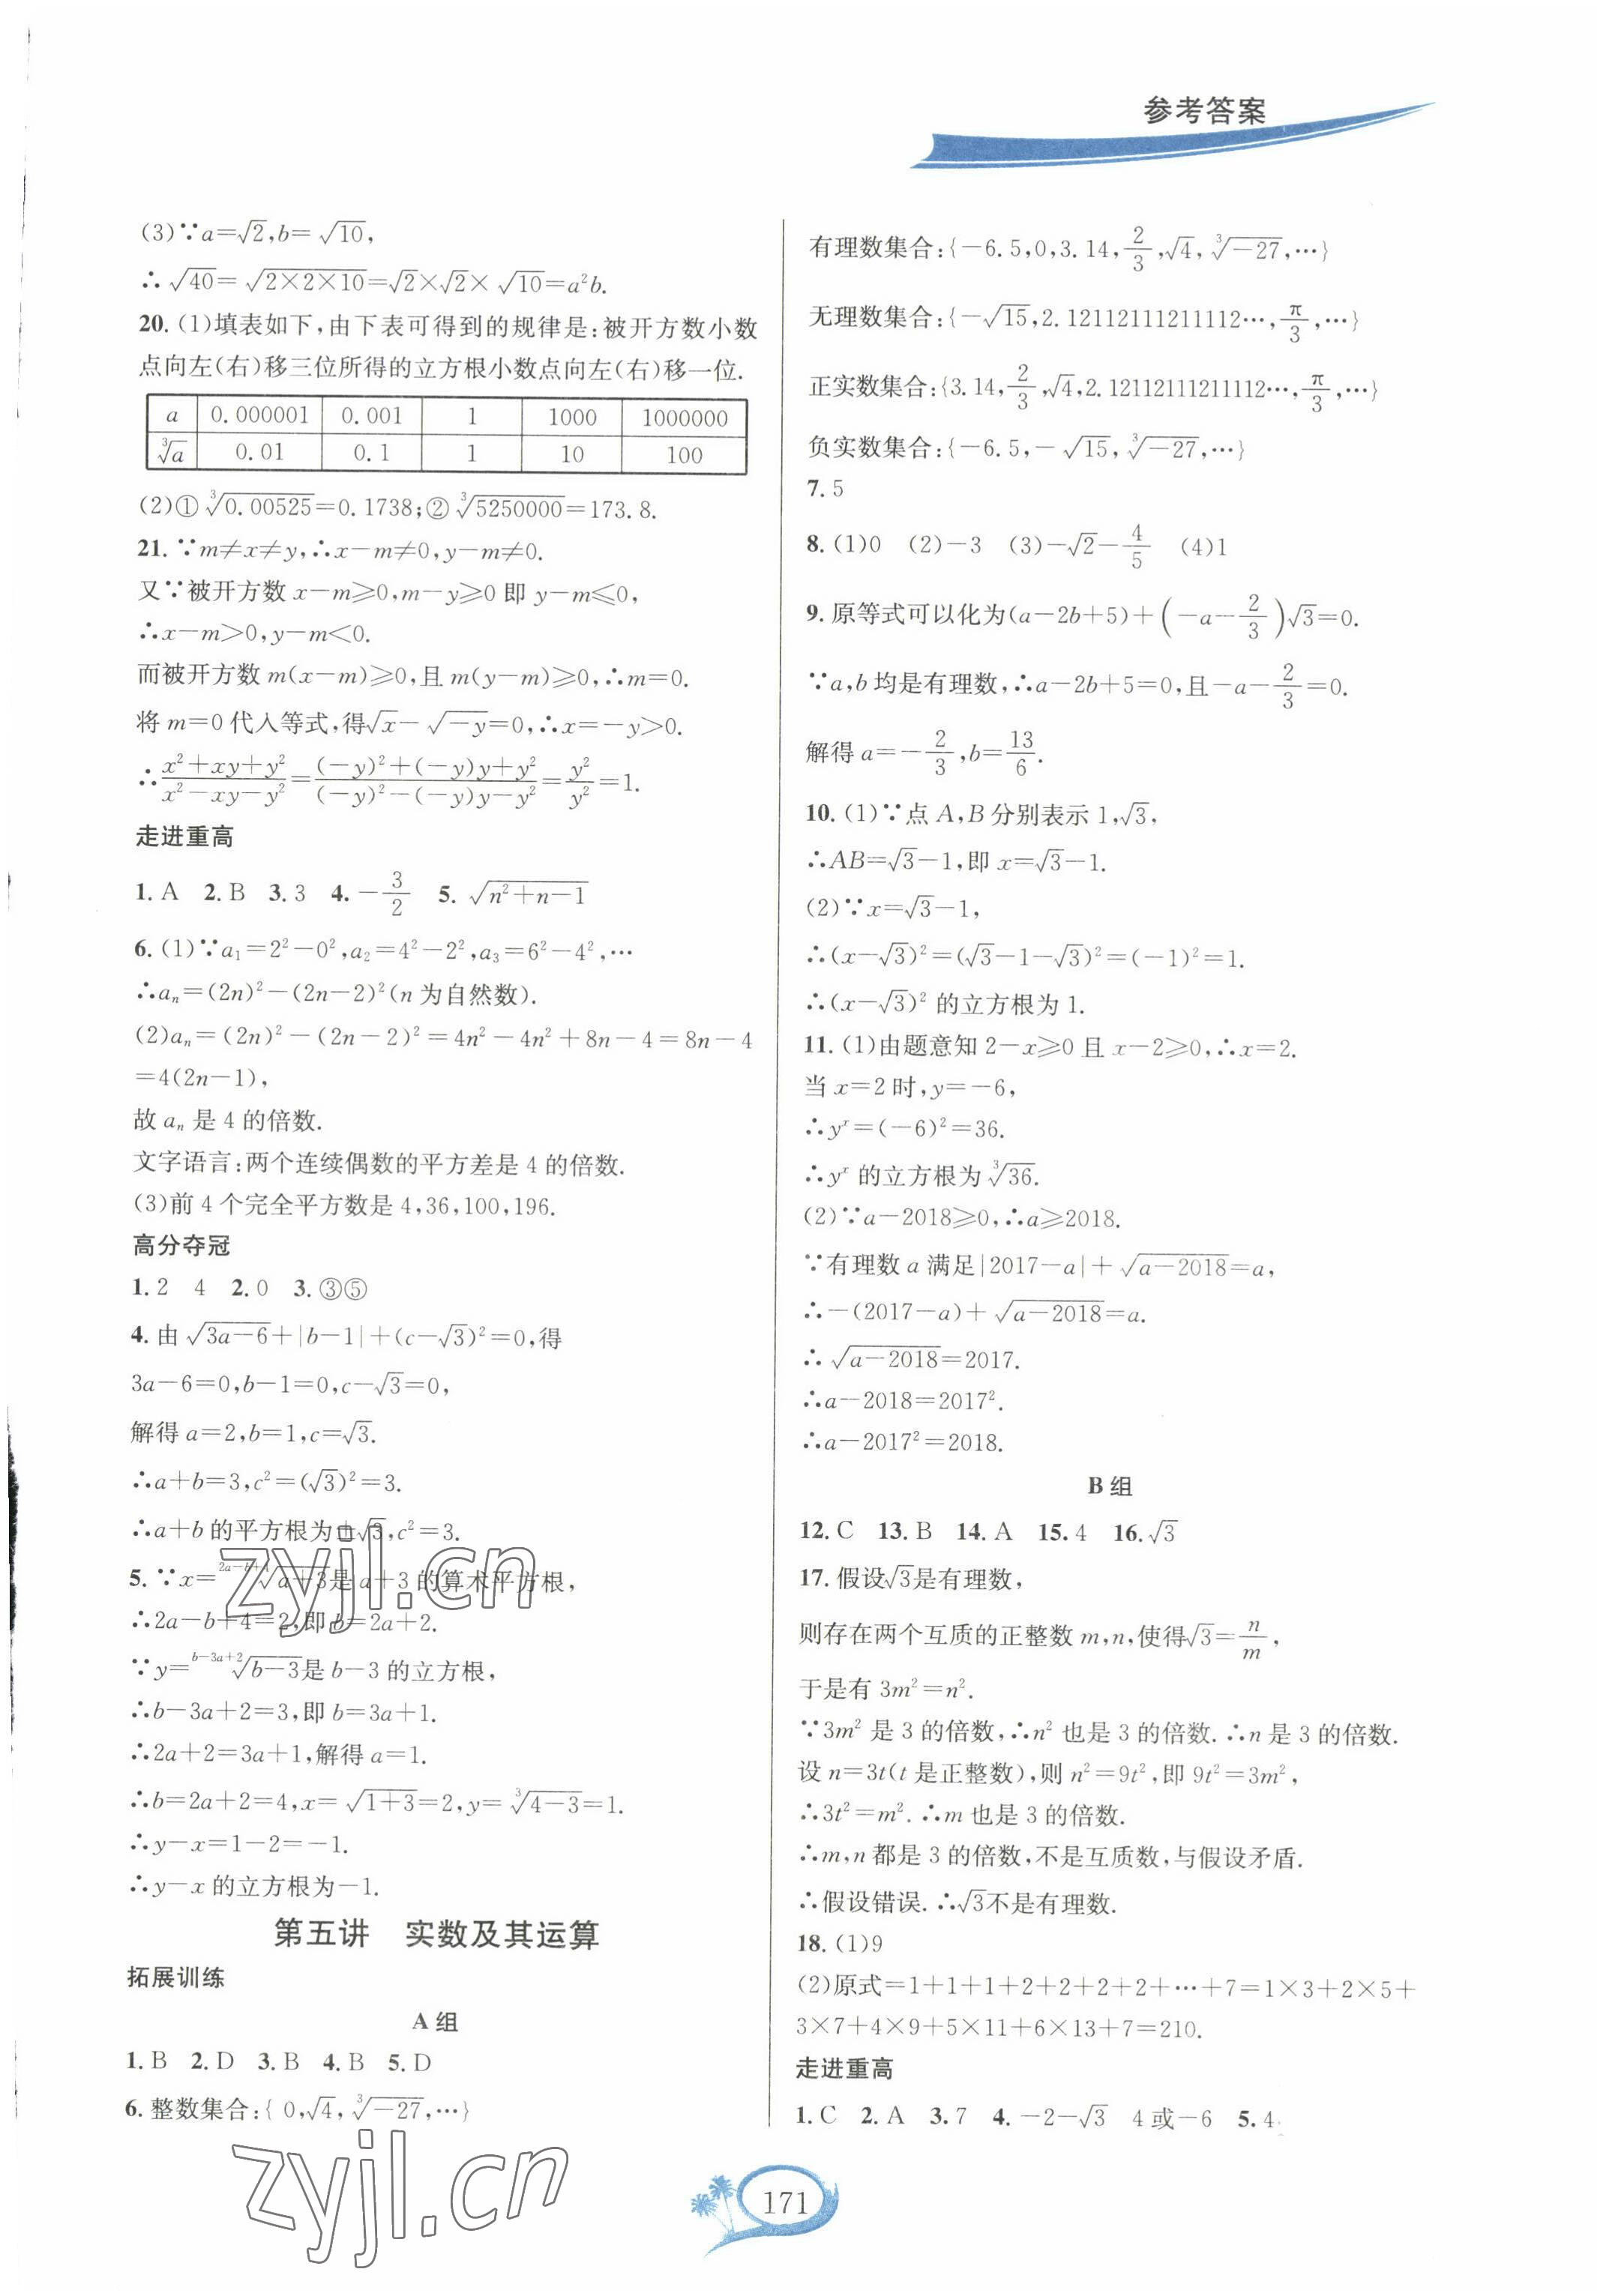 参考答案
(3)∵a=√2,b=√10,
∴√40=√(2×2×10)=√2×√2×√10=a²b.
20. (1)填表如下,由下表可得到的规律是:被开方数小数
点向左(右)移三位所得的立方根小数点向左(右)移一位.
a 0.000001 0.001 1 1000 1000000
∛a 0.01 0.1 1 10 100
(2)①∛0.00525=0.1738;②∛5250000=173.8.
21. ∵m≠x≠y,∴x-m≠0,y-m≠0.
又∵被开方数 x-m≥0,m-y≥0 即 y-m≤0,
∴x-m>0,y-m<0.
而被开方数 m(x-m)≥0,且 m(y-m)≥0,∴m=0.
将 m=0 代入等式,得√x-√(-y)=0,∴x=-y>0.
∴(x²+xy+y²)/(x²-xy-y²)=((-y)²+(-y)y+y²)/((-y)²-(-y)y-y²)=y²/y²=1.
走进重高
1. A 2. B 3. 3 4. -3/2 5. √(n²+n-1)
6. (1)∵a₁=2²-0²,a₂=4²-2²,a₃=6²-4²,…
∴aₙ=(2n)²-(2n-2)²(n 为自然数).
(2)aₙ=(2n)²-(2n-2)²=4n²-4n²+8n-4=8n-4
=4(2n-1),
故 aₙ 是 4 的倍数.
文字语言:两个连续偶数的平方差是 4 的倍数.
(3)前 4 个完全平方数是 4,36,100,196.
高分夺冠
1. 2 4 2. 0 3. ③⑤
4. 由√(3a-6)+|b-1|+(c-√3)²=0,得
3a-6=0,b-1=0,c-√3=0,
解得 a=2,b=1,c=√3.
∴a+b=3,c²=(√3)²=3.
∴a+b 的平方根为±√3,c²=3.
5. ∵x=²ᵃ⁻ᵇ⁺⁴√(a+3)是 a+3 的算术平方根,
∴2a-b+4=2,即 b=2a+2.
∵y=ᵇ⁻³ᵃ⁺²√(b-3)是 b-3 的立方根,
∴b-3a+2=3,即 b=3a+1.
∴2a+2=3a+1,解得 a=1.
∴b=2a+2=4,x=√(1+3)=2,y=∛(4-3)=1.
∴y-x=1-2=-1.
∴y-x 的立方根为-1.
第五讲 实数及其运算
拓展训练
A 组
1. B 2. D 3. B 4. B 5. D
6. 整数集合:{ 0,√4,∛(-27),…}
有理数集合:{-6.5,0,3.14,2/3,√4,∛(-27),…}
无理数集合:{-√15,2.12112111211112…,π/3,…}
正实数集合:{3.14,2/3,√4,2.12112111211112…,π/3,…}
负实数集合:{-6.5,-√15,∛(-27),…}
7. 5
8. (1)0 (2)-3 (3)-√2-4/5 (4)1
9. 原等式可以化为(a-2b+5)+(-a-2/3)√3=0.
∵a,b 均是有理数,∴a-2b+5=0,且-a-2/3=0.
解得 a=-2/3,b=13/6.
10. (1)∵点 A,B 分别表示 1,√3,
∴AB=√3-1,即 x=√3-1.
(2)∵x=√3-1,
∴(x-√3)²=(√3-1-√3)²=(-1)²=1.
∴(x-√3)² 的立方根为 1.
11. (1)由题意知 2-x≥0 且 x-2≥0,∴x=2.
当 x=2 时,y=-6,
∴yˣ=(-6)²=36.
∴yˣ 的立方根为∛36.
(2)∵a-2018≥0,∴a≥2018.
∵有理数 a 满足|2017-a|+√(a-2018)=a,
∴-(2017-a)+√(a-2018)=a.
∴√(a-2018)=2017.
∴a-2018=2017².
∴a-2017²=2018.
B 组
12. C 13. B 14. A 15. 4 16. √3
17. 假设√3是有理数,
则存在两个互质的正整数 m,n,使得√3=n/m,
于是有 3m²=n².
∵3m² 是 3 的倍数,∴n² 也是 3 的倍数. ∴n 是 3 的倍数.
设 n=3t(t 是正整数),则 n²=9t²,即 9t²=3m²,
∴3t²=m². ∴m 也是 3 的倍数.
∴m,n 都是 3 的倍数,不是互质数,与假设矛盾.
∴假设错误. ∴√3不是有理数.
18. (1)9
(2)原式=1+1+1+2+2+2+2+…+7=1×3+2×5+
3×7+4×9+5×11+6×13+7=210.
走进重高
1. C 2. A 3. 7 4. -2-√3 4 或-6 5. 4
zyjl.cn
zyjl.cn
171